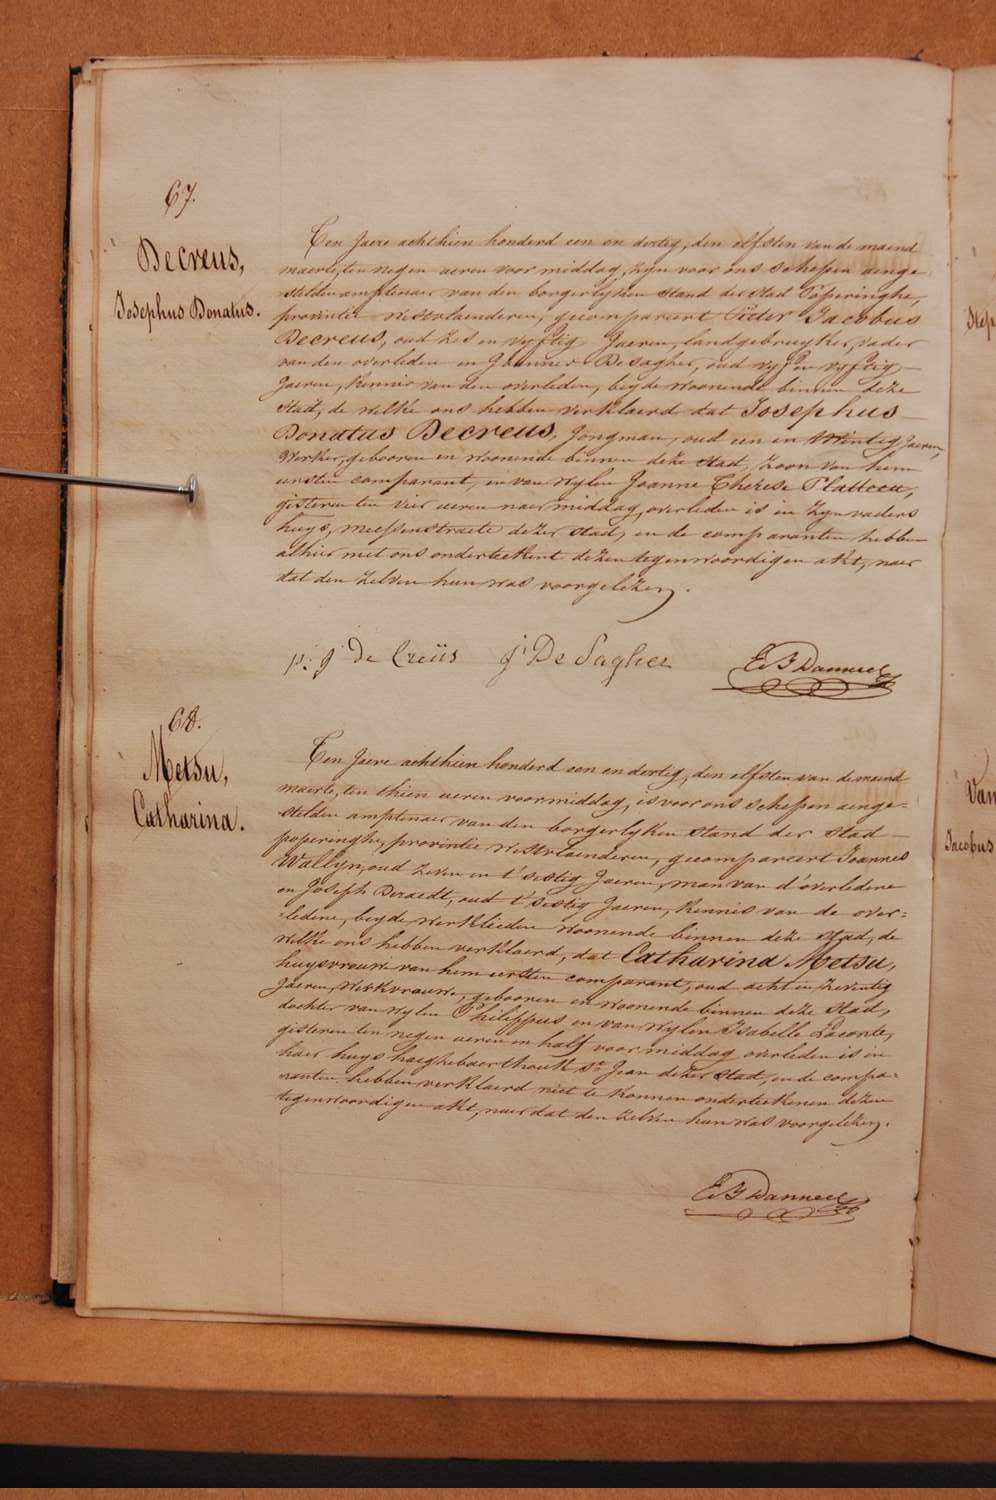 67.
Decreus,
Josephus Donatus.
Ten Jaere achthien honderd een en dertig, den elfsten van de maend
maerte, ten negen ueren voor middag, zyn voor ons schepen aenge-
stelden amptenaer van den borgerlyken stand der stad Poperinghe,
provintie westvlaenderen, gecompareert Pieter Jacobus
Decreus, oud zes en vyftig Jaeren, landgebruyker, vader
van den overleden en Joannes Desagher, oud vyf en vyftig
Jaeren, kennis van den overleden, beyde woonende binnen deze
stad, de welke ons hebben verklaerd dat Josephus
Donatus Decreus, Jongman, oud een en twintig Jaeren,
werker, gebooren en woonende binnen deze stad, zoon van hem
eersten comparant, en van wylen Joanne Therese Platteeu,
gisteren ten vier ueren naer middag, overleden is in zyn vaders
huys, meessenstraete dezer stad, en de comparanten hebben
alhier met ons onderteekent dezen tegenwoordigen akt, naer
dat den zelven hun was voorgelezen.
p: j De Creüs J De Sagher E B Danneel
68.
Metsu,
Catharina.
Ten Jaere achthien honderd een en dertig, den elfsten van de maend
maerte, ten thien ueren voormiddag, is voor ons schepen aenge-
stelden amptenaer van den borgerlyken stand der stad
poperinghe, provintie westvlaenderen, gecompareert Joannes
Wallyn, oud zeven en t'sestig Jaeren, man van d'overledene
en Joseph Deraedt, oud t'sestig Jaeren, kennis van de over=
=ledene, beyde werklieden woonende binnen deze stad, de
welke ons hebben verklaerd, dat Catharina Metsu,
huysvrouwe van hem eersten comparant, oud acht en zeventig
Jaeren, werkvrouwe, gebooren en woonende binnen deze stad,
dochter van wylen Philippus en van wylen Isabelle Leconte,
gisteren ten negen ueren en half voor middag overleden is in
haer huys haeghebaerthoek St Jean dezer stad, en de compa=
ranten hebben verklaerd niet te konnen onderteekenen dezen
tegenwoordigen akt, naer dat den zelven hun was voorgelezen.
E B Danneel
Step
Van
Jacobus